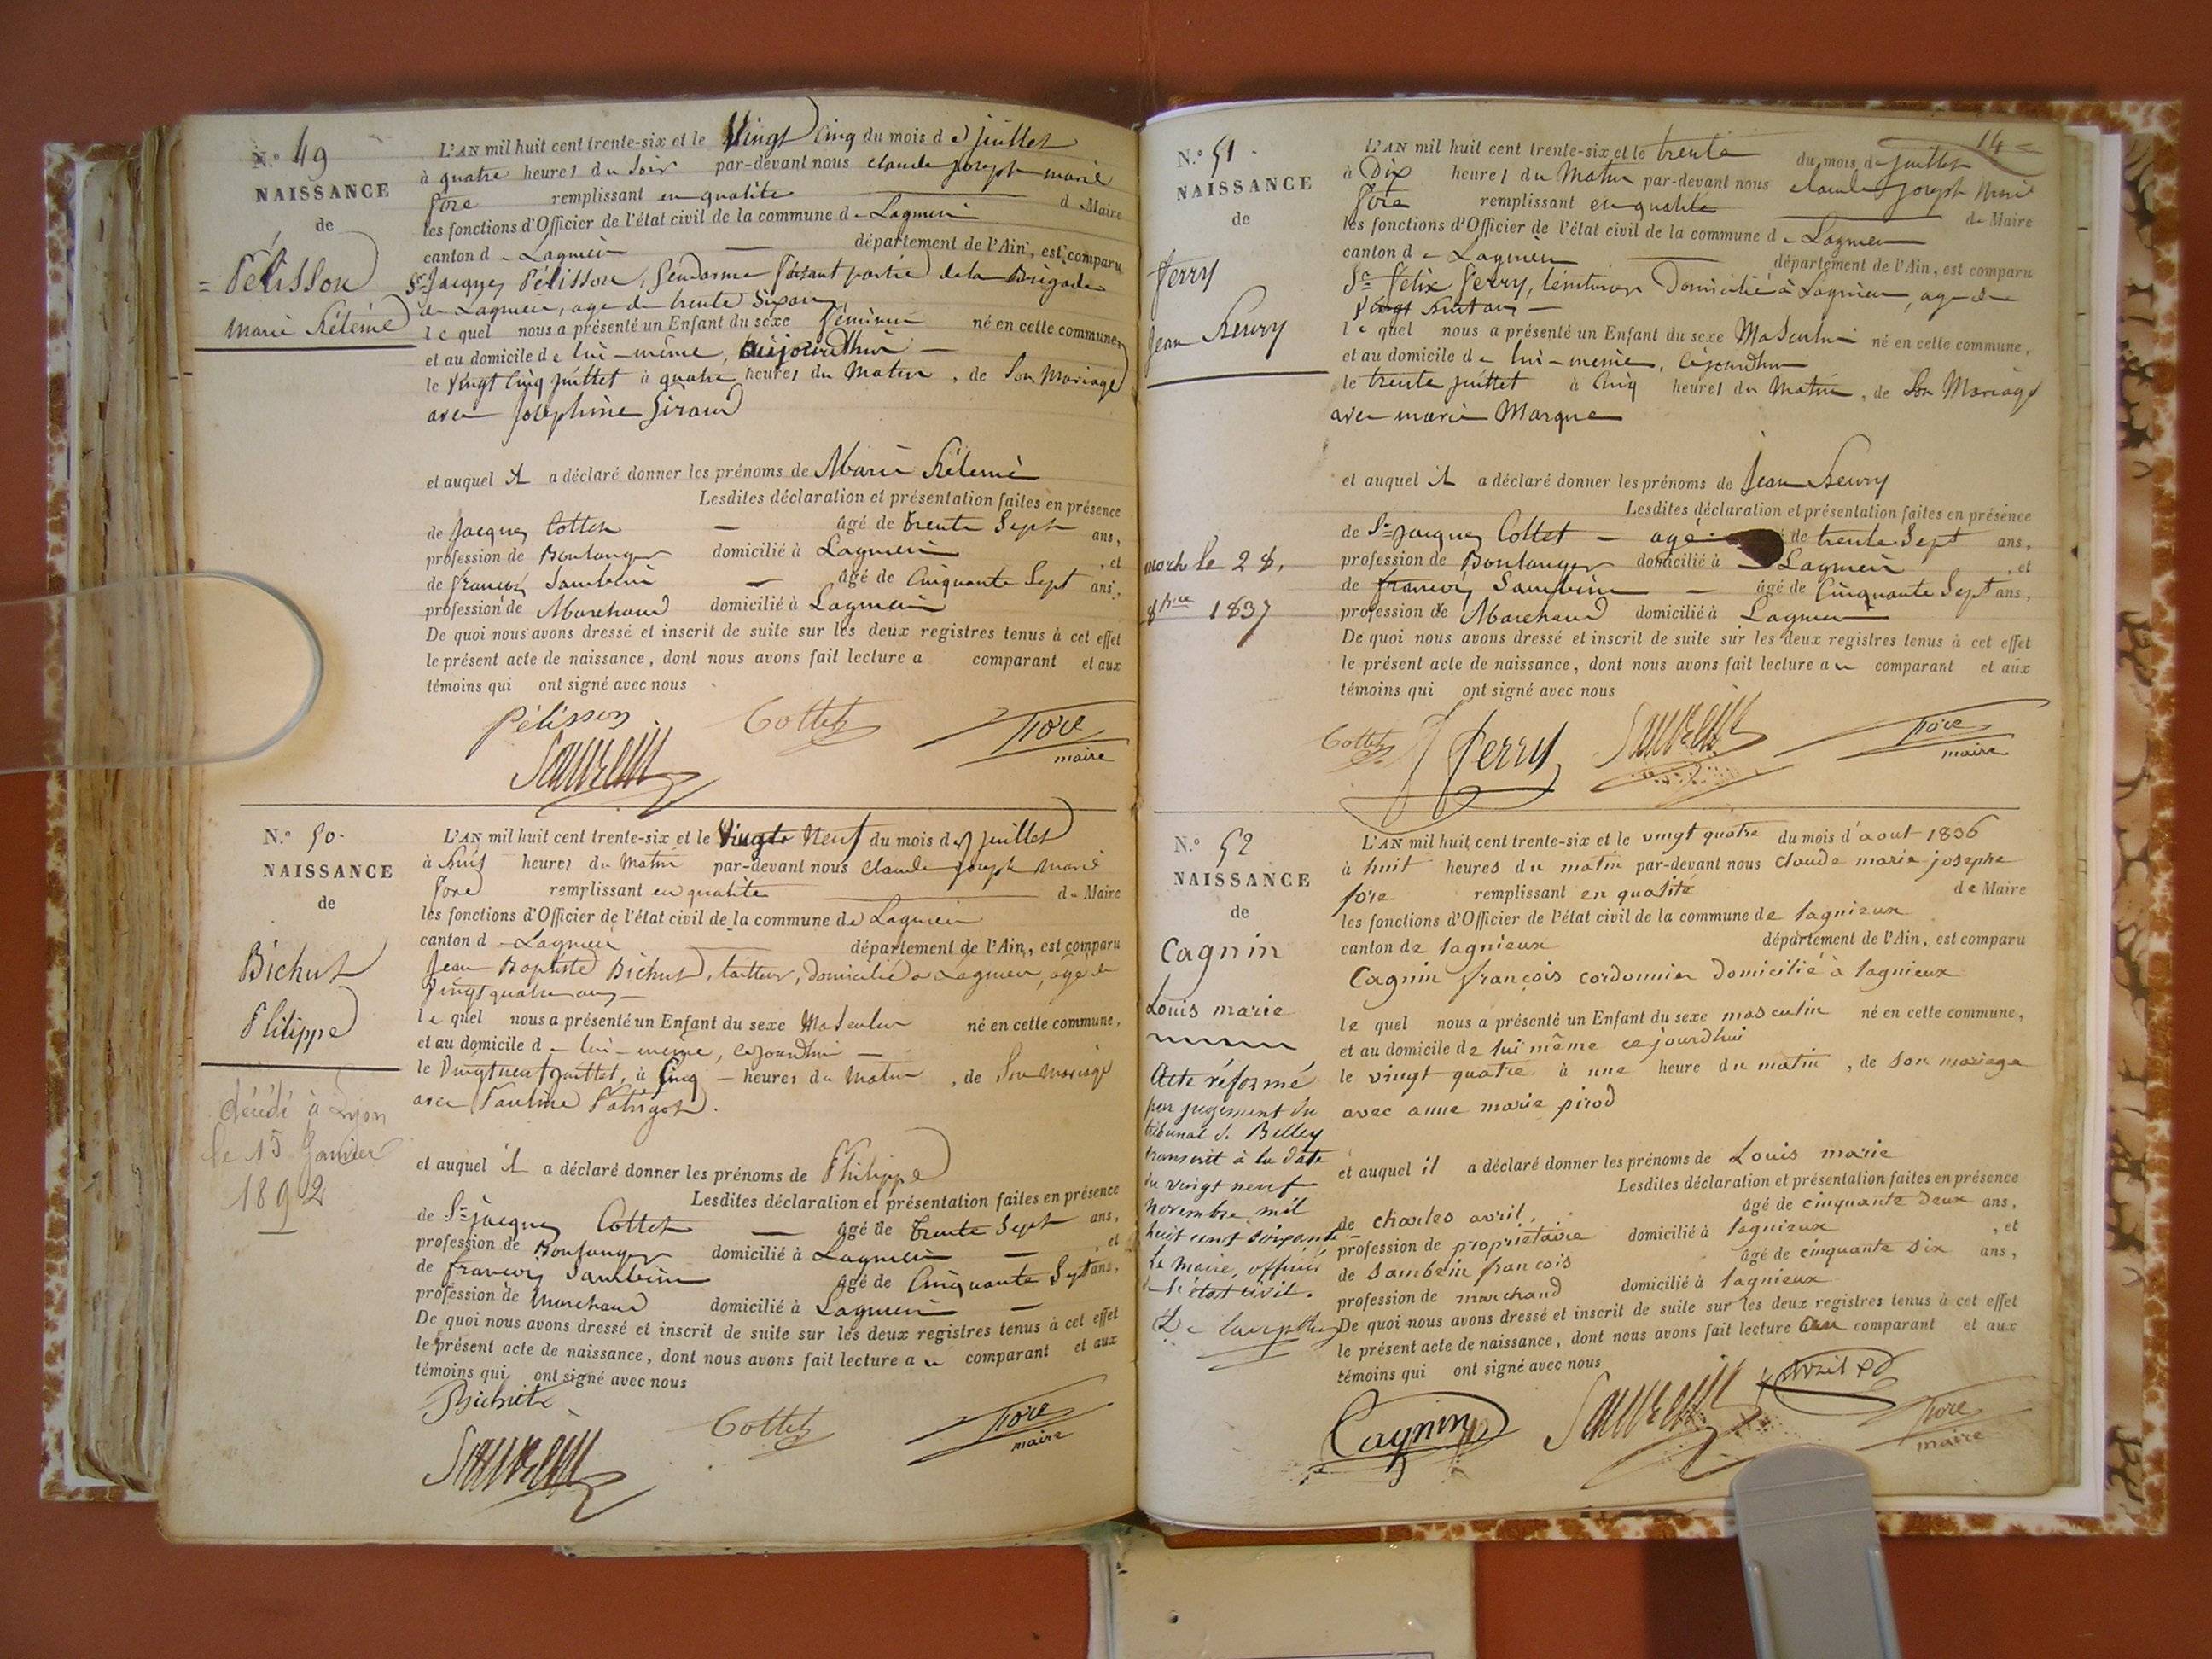 N.° 49
NAISSANCE
de
Pélisson
Marie
L'AN mil huit cent trente-six et le Vingt Cinq du mois de juillet
à quatre heures du Soir par-devant nous Claude Joseph marie
fore remplissant en qualité de Maire
les fonctions d'Officier de l'état civil de la commune de Lagnieu
canton de Lagnieu département de l'Ain, est comparu
Sr Jacques Pélisson, Gendarme faisant partie de la Brigade
de Lagnieu, agé de trente Six ans,
le quel nous a présenté un Enfant du sexe féminin né en cette commune,
et au domicile de lui-même, aujourdhui
le Vingt Cinq juillet à quatre heures du Matin, de Son Mariage
avec Joséphine Giraud
et auquel il a déclaré donner les prénoms de Marie
Lesdites déclaration et présentation faites en présence
de Jacques Cottet âgé de trente Sept ans,
profession de Boulanger domicilié à Lagnieu, et
de françois Sambein âgé de Cinquante Sept ans,
profession de Marchand domicilié à Lagnieu
De quoi nous avons dressé et inscrit de suite sur les deux registres tenus à cet effet
le présent acte de naissance, dont nous avons fait lecture a comparant et aux
témoins qui ont signé avec nous
Pélisson Cottet fore
maire
Sambein
N.° 50.
NAISSANCE
de
Bichut
Philippe
décédé à Lyon
le 15 Janvier
1892
L'AN mil huit cent trente-six et le Vingt Neuf du mois de juillet
à huit heures du Matin par-devant nous Claude Joseph Marie
fore remplissant en qualité de Maire
les fonctions d'Officier de l'état civil de la commune de Lagnieu
canton de Lagnieu département de l'Ain, est comparu
Jean Baptiste Bichut, tailleur, domicilié à Lagnieu, agé de
Vingt quatre ans
le quel nous a présenté un Enfant du sexe Masculin né en cette commune,
et au domicile de lui-meme, cejourdhui
le Vingt neuf juillet, à Cinq heures du Matin, de Son Mariage
avec Pauline
et auquel il a déclaré donner les prénoms de Philippe
Lesdites déclaration et présentation faites en présence
de Sr Jacques Cottet âgé de trente Sept ans,
profession de Boulanger domicilié à Lagnieu, et
de françois Sambein âgé de Cinquante Sept ans,
profession de Marchand domicilié à Lagnieu
De quoi nous avons dressé et inscrit de suite sur les deux registres tenus à cet effet
le présent acte de naissance, dont nous avons fait lecture au comparant et aux
témoins qui ont signé avec nous
Bichut
Cottet fore
maire
Sambein
14
N.° 51.
NAISSANCE
de
ferry
Jean heury
mort le 28,
8bre 1837
L'AN mil huit cent trente-six et le trente du mois de juillet
à Dix heures du Matin par-devant nous Claude Joseph Marie
fore remplissant en qualité de Maire
les fonctions d'Officier de l'état civil de la commune de Lagnieu
canton de Lagnieu département de l'Ain, est comparu
Sr félix ferry, teinturier Domicilié à Lagnieu, agé de
Vingt huit ans
le quel nous a présenté un Enfant du sexe Masculin né en cette commune,
et au domicile de lui-meme, cejourdhui
le trente juillet à Cinq heures du Matin, de Son Mariage
avec marie Marque
et auquel il a déclaré donner les prénoms de Jean heury
Lesdites déclaration et présentation faites en présence
de Sr Jacques Cottet agé de trente Sept ans,
profession de Boulanger domicilié à Lagnieu, et
de françois Sambein âgé de Cinquante Sept ans,
profession de Marchand domicilié à Lagnieu
De quoi nous avons dressé et inscrit de suite sur les deux registres tenus à cet effet
le présent acte de naissance, dont nous avons fait lecture au comparant et aux
témoins qui ont signé avec nous
Cottet ferry Sambein fore
maire
N.° 52
NAISSANCE
de
Cagnin
Louis marie
Acte réformé
par jugement du
tribunal de Belley
transcrit à la date
du vingt neuf
novembre mil
huit cent soixante
Le maire, officier
de l'état civil.
L'AN mil huit cent trente-six et le vingt quatre du mois d'aout 1836
à huit heures du matin par-devant nous claude marie josephe
fore remplissant en qualité de Maire
les fonctions d'Officier de l'état civil de la commune de lagnieux
canton de lagnieux département de l'Ain, est comparu
Cagnin françois cordonnier domicilié à lagnieux
le quel nous a présenté un Enfant du sexe masculin né en cette commune,
et au domicile de lui même ce jourdhui
le vingt quatre à une heure du matin, de son mariage
avec anne marie pirod
et auquel il a déclaré donner les prénoms de Louis marie
Lesdites déclaration et présentation faites en présence
de charles avril, âgé de cinquante deux ans,
profession de propriétaire domicilié à lagnieux, et
de Sambein francois âgé de cinquante six ans,
profession de marchand domicilié à lagnieux
De quoi nous avons dressé et inscrit de suite sur les deux registres tenus à cet effet
le présent acte de naissance, dont nous avons fait lecture au comparant et aux
témoins qui ont signé avec nous
Cagnin Sambein avril fore
maire